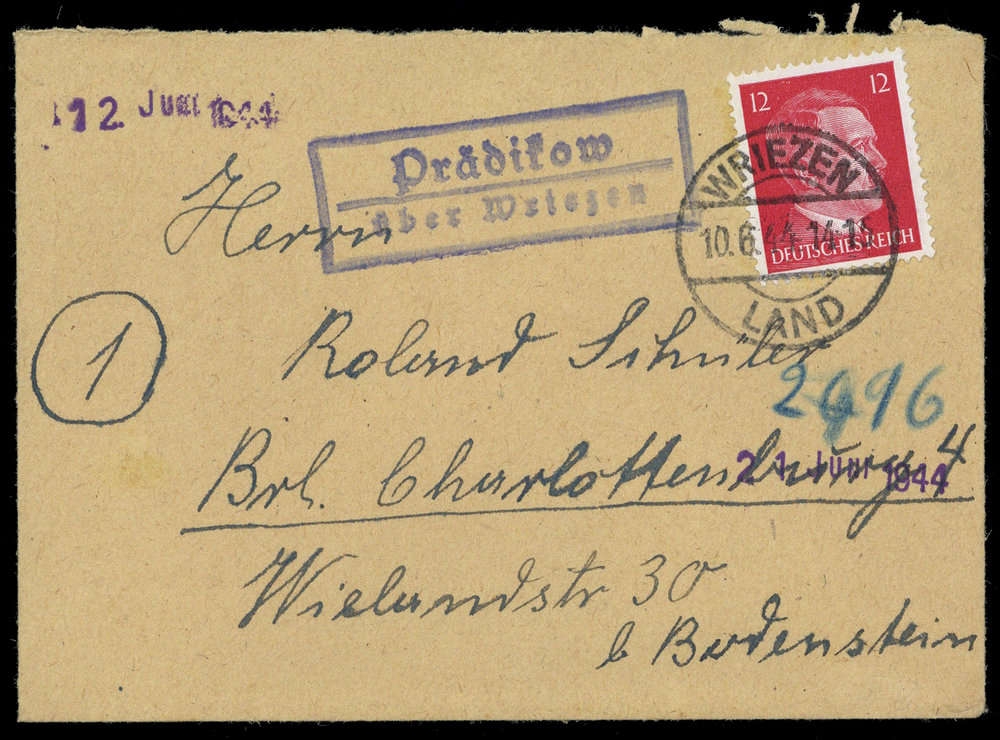 12. Juni 1944
Prädikow
über Wriezen
12 12
DEUTSCHES REICH
WRIEZEN
10.6.44.14-15
LAND
Herrn
1
Roland Schüler
2496
Brl. Charlottenburg 4
21. Juni 1944
Wielandstr 30
b Bodenstein